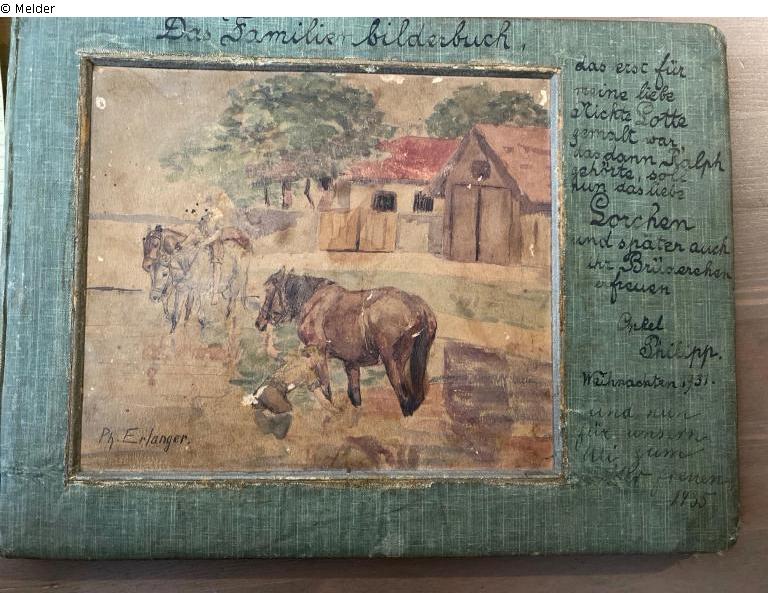 © Melder
Das Familienbilderbuch,
das erst für
meine liebe
Nichte Lotte
gemalt war,
das dann Ralph
gehörte, soll
nun das liebe
Lorchen
und später auch
ihr Brüderchen
erfreuen
Onkel
Philipp.
Weihnachten 1931.
und nun
für unsern
Uli zum
freuen
1935
Ph. Erlanger.